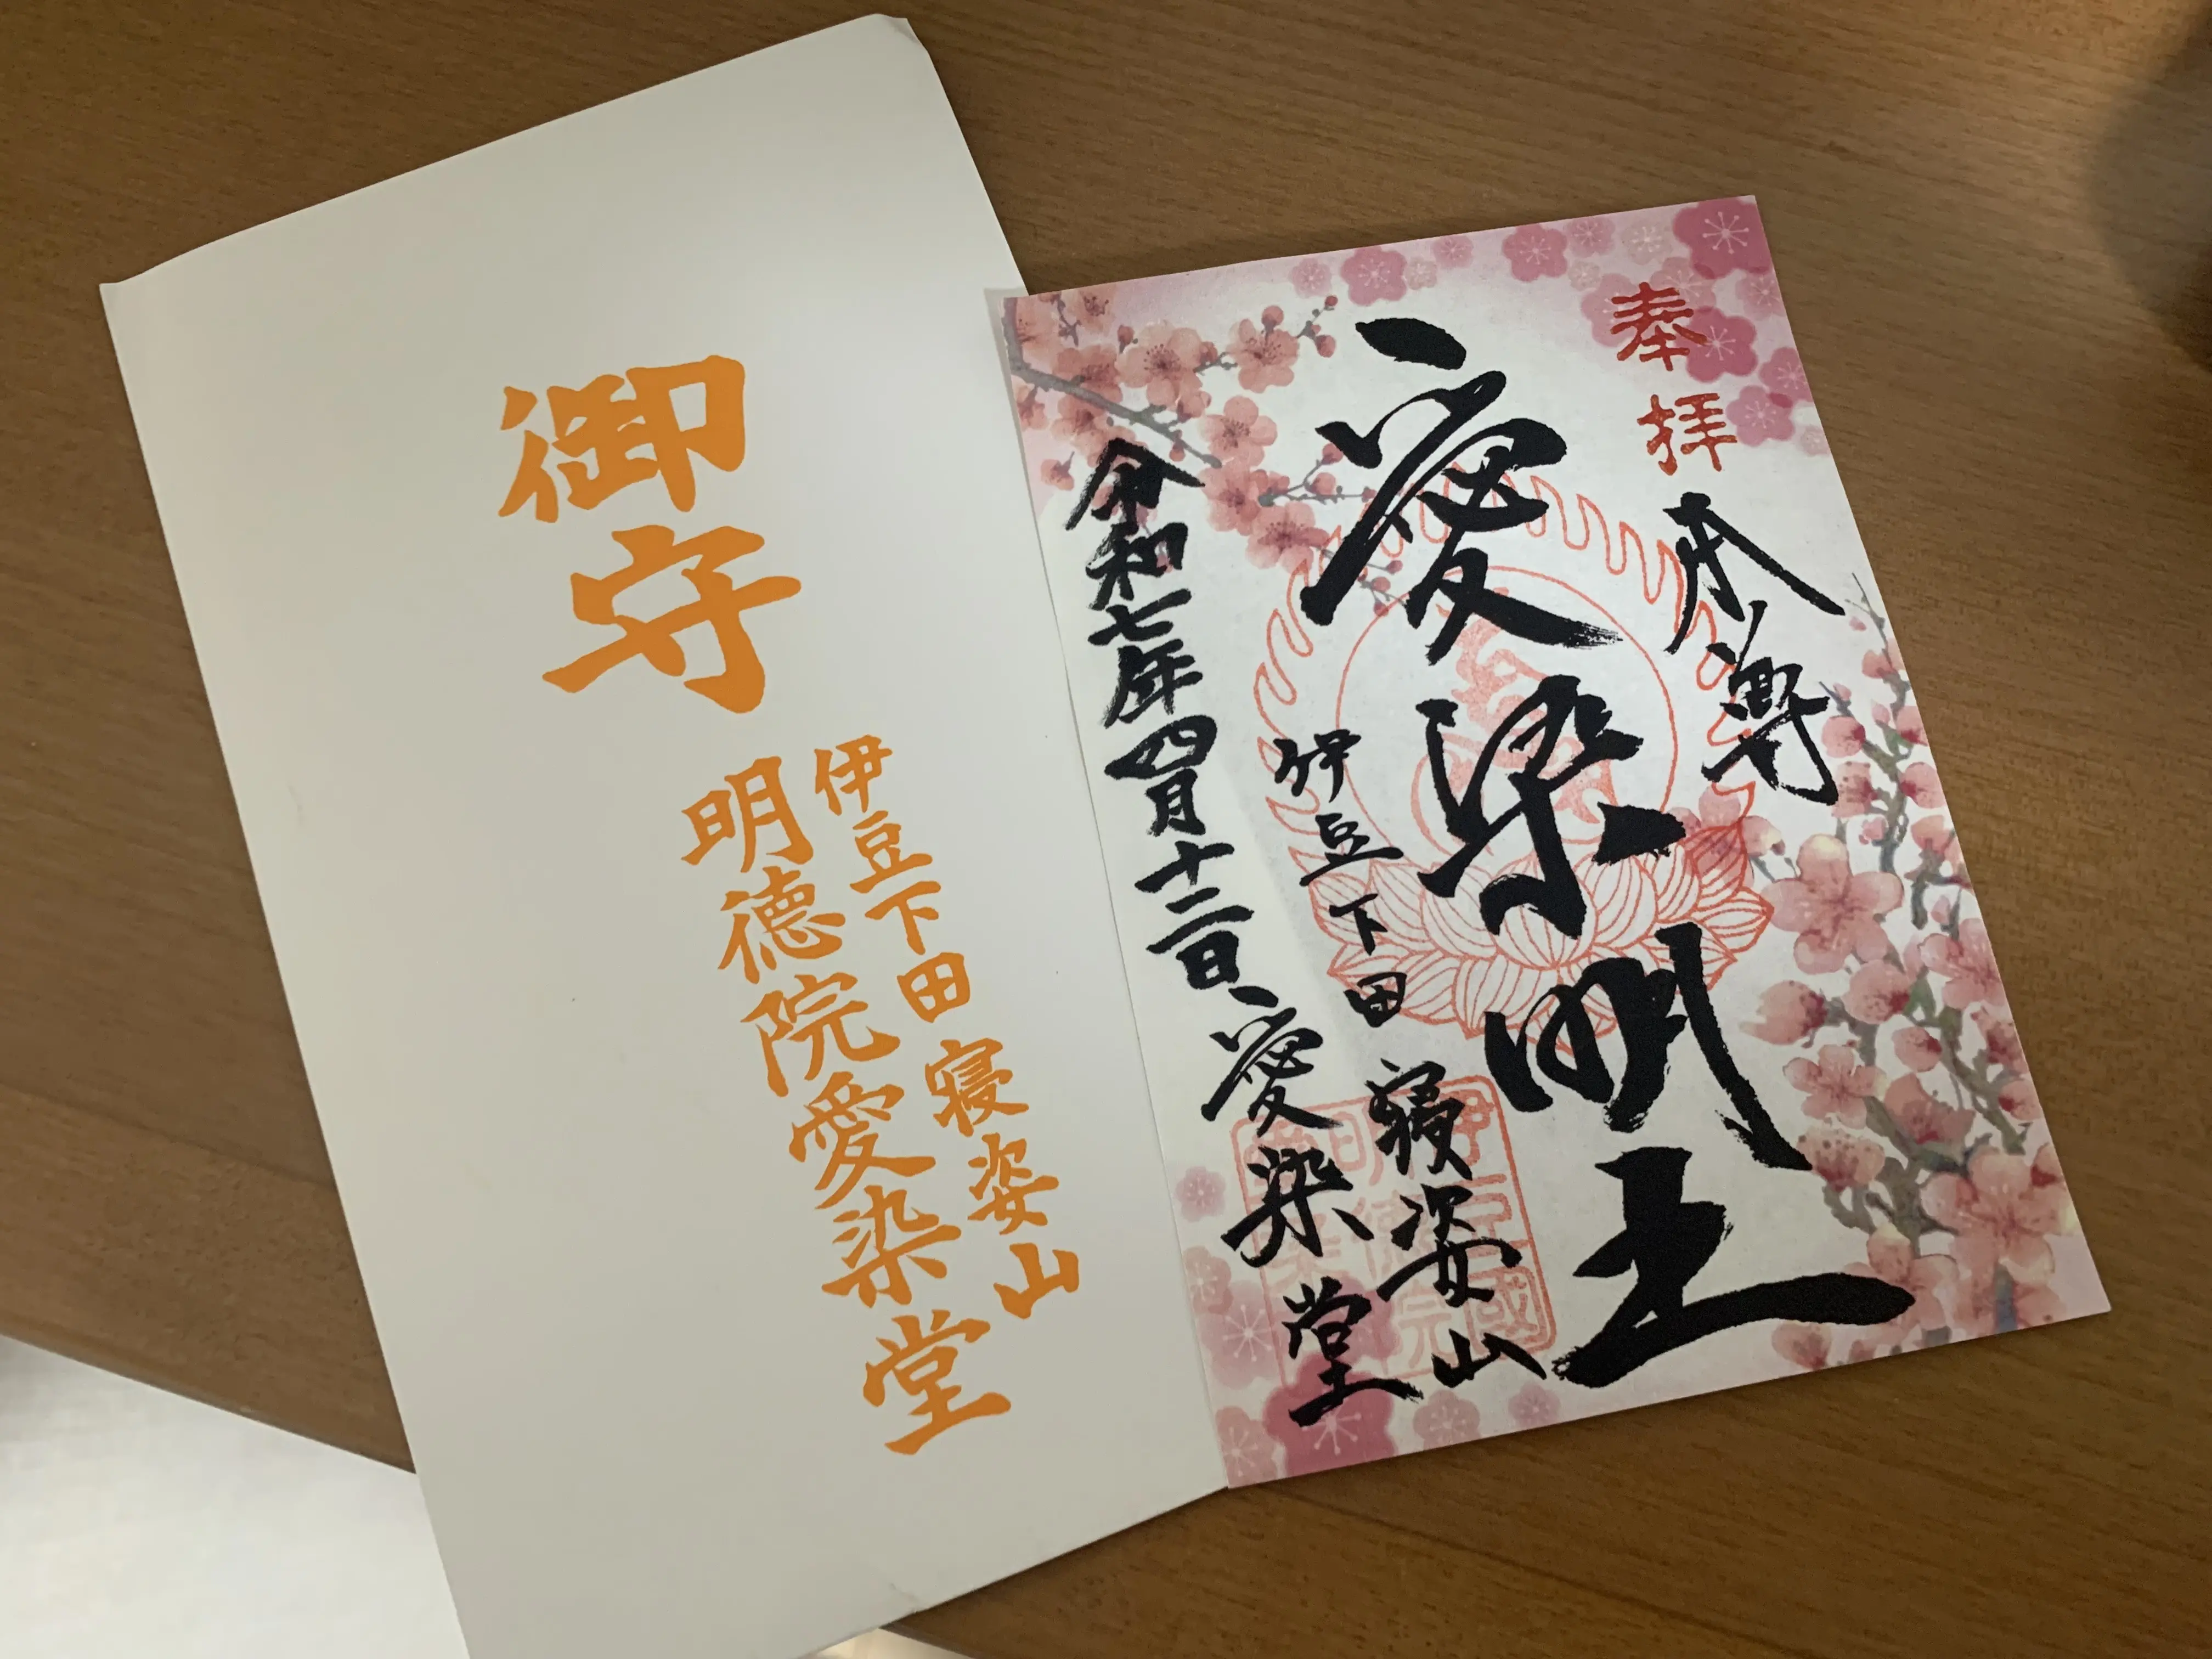 御守
伊豆下田 寝姿山
明徳院愛染堂
奉拝
本尊
愛染明王
伊豆下田 寝姿山
令和七年四月十二日 愛染堂